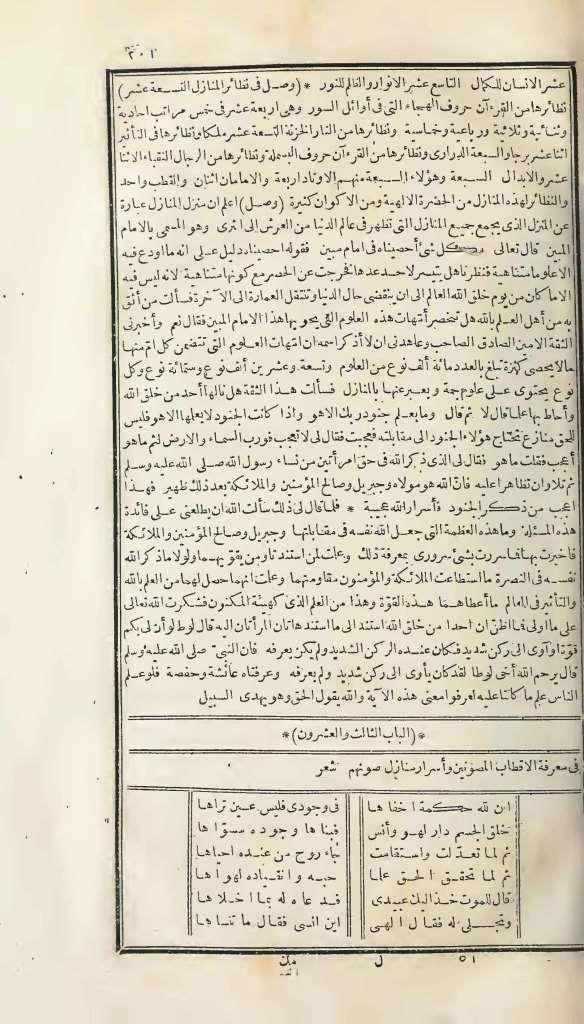 ٢٠١
عشر الانسان للكمال التاسع عشر الانوار والظالم للنور * (وصل فى نظائر المنازل التسعة عشر)
نظائرها من القرءآن حروف الهجاء التى فى أوائل السور وهى أربعة عشر فى خمس مراتب احادية
وثنائية وثلاثية ورباعية وخماسية ونظائرها من النار الخزنة التسعة عشر ملكا ونظائرها فى التأثير
اثنا عشر برجا والسبعة الدرارى ونظائرها من القرءآن حروف البسملة ونظائرها من الرجال النقباء الاثنا
عشر والابدال السبعة وهؤلاء السبعة منهم الاوتاد أربعة والامامان اثنان والقطب واحد
والنظائر لهذه المنازل من الحضرة الالهية ومن الاكوان كثيرة (وصل) اعلم ان منزل المنازل عبارة
عن المنزل الذى يجمع جميع المنازل التى تظهر فى عالم الدنيا من العرش الى الثرى وهو المسمى بالامام
المبين قال تعالى وكل شئ أحصيناه فى امام مبين فقوله احصيناه دليل على انه ما اودع فيه
الاعلوما متناهية فنظرنا هل يتيسر لاحد عدها فخرجت عن الحصر مع كونها متناهية لانه ليس فيه
الاما كان من يوم خلق الله العالم الى ان ينقضى حال الدنيا وتنتقل العمارة الى الآخرة فسألت من أثق
به من أهل العلم بالله هل تنحصر أمتهات هذه العلوم التى يحويها هذا الامام المبين فقال نعم وأخبرنى
الثقة الامين الصادق الصاحب وعاهدنى ان لا أذكر اسمه ان امتهات العلوم التى تتضمن كل ام منها
مالا يحصى كثرة تبلغ بالعدد مائة ألف نوع من العلوم وتسعة وعشرين ألف نوع وستمائة نوع وكل
نوع يحتوى على علوم جمة ويعبر عنها بالمنازل فسألت هذا الثقة هل نالها أحد من خلق الله
وأحاط بها علما قال لا ثم قال وما يعلم جنود ربك الا هو واذا كانت الجنود لا يعلمها الا هو فليس
للحق منازع تحتاج هؤلاء الجنود الى مقابلته فعجبت فقال لى لا تعجب فورب السماء والارض لثم ما هو
أعجب فقلت ما هو فقال لى الذى ذكر الله فى حق امرأتين من نساء رسول الله صلى الله عليه وسلم
ثم تلا وان تظاهرا عليه فان الله هو مولاه وجبريل وصالح المؤمنين والملائكة بعد ذلك ظهير فهذا
اعجب من ذكر الجنود فأسرار الله عجيبة * فلما قال لى ذلك سألت الله ان يطلعنى على فائدة
هذه المسئلة وما هذه العظمة التى جعل الله نفسه فى مقابلتها وجبريل وصالح المؤمنين والملائكة
فأخبرت بها فما سررت بشئ سرورى بمعرفة ذلك وعلمت لمن استندتا ومن يقويهما ولولا ما ذكر الله
نفسه فى النصرة ما استطاعت الملائكة والمؤمنون مقاومتهما وعلمت انهما حصل لهما من العلم بالله
والتأثير فى العالم ما أعطاهما هذه القوة وهذا من العلم الذى كهيئة المكنون فشكرت الله تعالى
على ما اولى فما اظن ان احدا من خلق الله استند الى ما استند هاتان المرأتان اليه قال لوط لو أن لى بكم
قوة أو آوى الى ركن شديد فكان عنده الركن الشديد ولم يكن يعرفه فان النبى صلى الله عليه وسلم
قال يرحم الله أخى لوطا لقد كان يأوى الى ركن شديد ولم يعرفه وعرفتاه عائشة وحفصة فلو علم
الناس علم ما كانتا عليه لعرفوا معنى هذه الآية والله يقول الحق وهو يهدى السبيل
* (الباب الثالث والعشرون) *
فى معرفة الاقطاب المصونين وأسرار منازل صونهم شعر
ان لله حكمة اخفاها فى وجودى فليس عين تراها
خلق الجسم دار لهو وأنس فبناها وجوده سوّاها
ثم لما تعدلت واستقامت جاء روح من عنده احياها
ثم لما تحقق الحق علما حبه وانقياده لهواها
قال للموت خذ اليك عبيدى فدعاه له بما اخلاها
وتجلى له فقال الهى اين انسى فقال ما تنساها
٥١ ل مك